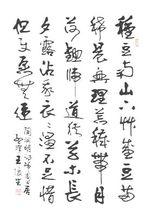 種豆南山下艸盛豆苗
稀晨興理荒穢帶月
荷鋤歸道狹草木長
夕露沾我衣衣沾不足惜
但使願無違
陶淵明詩